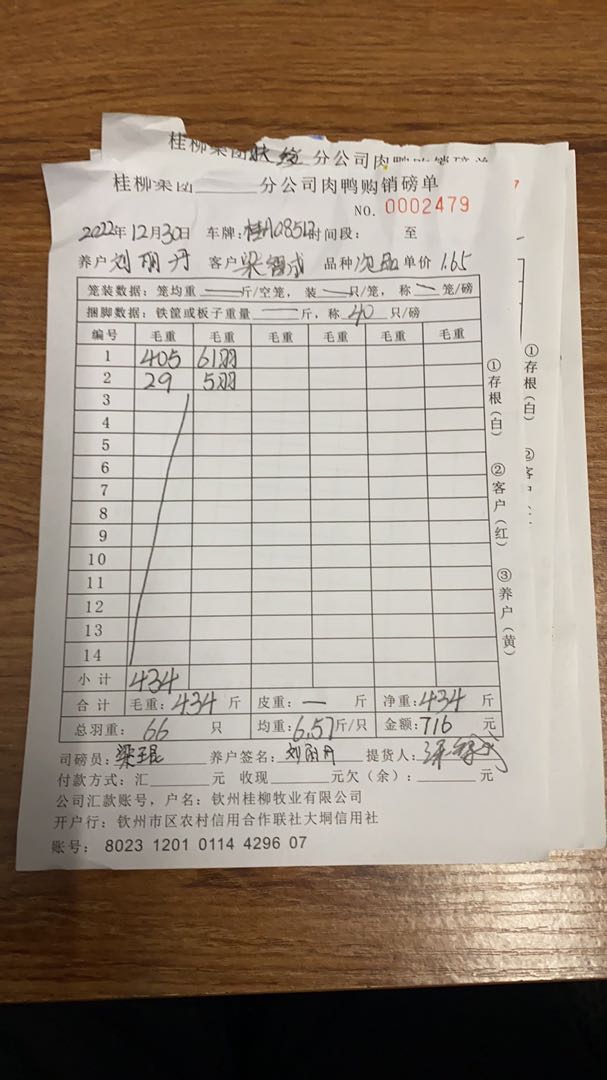 桂柳集团扶绥分公司肉鸭购销磅单
桂柳集团______分公司肉鸭购销磅单
NO. 0002479
2022年12月30日 车牌: 时间段: 至
养户 刘丽丹 客户 梁智成 品种 次品 单价 1.65
笼装数据: 笼均重 — 斤/空笼, 装 — 只/笼, 称 — 笼/磅
捆脚数据: 铁筐或板子重量 — 斤, 称 40 只/磅
编号 毛重 毛重 毛重 毛重 毛重 毛重
1 405 61羽
2 29 5羽
3
4
5
6
7
8
9
10
11
12
13
14
小计 434
合计 毛重: 434 斤 皮重: — 斤 净重: 434 斤
总羽重: 66 只 均重: 6.57斤/只 金额: 716 元
司磅员: 梁王昆 养户签名: 刘丽丹 提货人:
付款方式: 汇______元 收现______元欠(余): ______元
公司汇款账号, 户名: 钦州桂柳牧业有限公司
开户行: 钦州市区农村信用合作联社大垌信用社
账号: 8023 1201 0114 4296 07
①存根(白) ②客户(红) ③养户(黄)
①存根(白) ②客